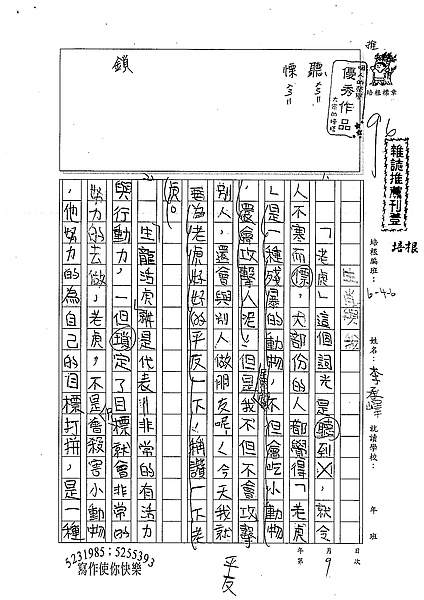 推
培根標章
個人的榮譽
優秀作品
大家的榜樣
96
雜誌推薦刊登
培根
聽
慄
鎖
培根編班：6-4-6
姓名：李
就讀學校：
年 班
日 月 年
次 9 第
生肖與我
「老虎」這個詞光是聽到，就令
人不寒而慄，大部份的人都覺得「老虎
」是一種殘暴的動物，不但會吃小動物
，還會攻擊人呢！但是我不但不會攻擊
別人，還會與別人做朋友呢！今天我就
要為老虎好好的平反一下，稱讚一下老
虎。
「生龍活虎」就是代表非常的有活力
與行動力，一但瑣定了目標就會非常的
努力的去做，老虎，不是會殺害小動物
，他努力的為自己的目標打拼，是一種
平反
5231985；5255393
寫作使你快樂